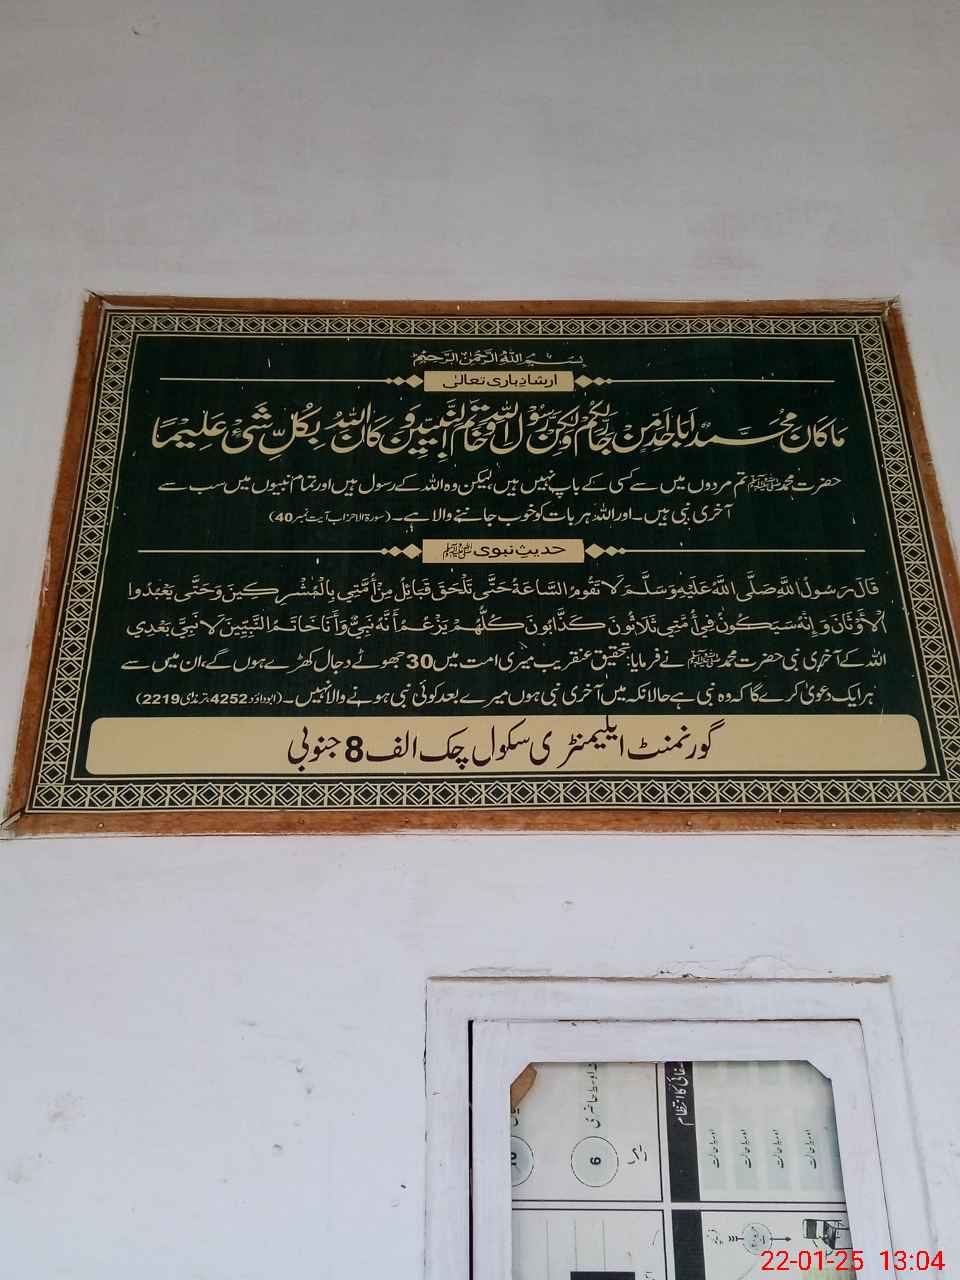 بِسْمِ اللّٰهِ الرَّحْمٰنِ الرَّحِيْمِ
ارشاد باری تعالیٰ
مَا كَانَ مُحَمَّدٌ اَبَا اَحَدٍ مِّنْ رِّجَالِكُمْ وَلٰكِنْ رَّسُوْلَ اللّٰهِ وَخَاتَمَ النَّبِيّٖنَ وَكَانَ اللّٰهُ بِكُلِّ شَيْءٍ عَلِيْمًا
حضرت محمد ﷺ تم مردوں میں سے کسی کے باپ نہیں ہیں، لیکن وہ اللہ کے رسول ہیں اور تمام نبیوں میں سب سے
آخری نبی ہیں۔ اور اللہ ہر بات کو خوب جاننے والا ہے۔ (سورۃ الاحزاب آیت نمبر 40)
حدیثِ نبوی ﷺ
قَالَ رَسُولُ اللَّهِ صَلَّى اللَّهُ عَلَيْهِ وَسَلَّمَ لَا تَقُومُ السَّاعَةُ حَتَّى تَلْحَقَ قَبَائِلُ مِنْ أُمَّتِي بِالْمُشْرِكِينَ وَحَتَّى يَعْبُدُوا
الْأَوْثَانَ وَإِنَّهُ سَيَكُونُ فِي أُمَّتِي ثَلَاثُونَ كَذَّابُونَ كُلُّهُمْ يَزْعُمُ أَنَّهُ نَبِيٌّ وَأَنَا خَاتَمُ النَّبِيِّينَ لَا نَبِيَّ بَعْدِي
اللہ کے آخری نبی حضرت محمد ﷺ نے فرمایا: تحقیق عنقریب میری امت میں 30 جھوٹے دجال کھڑے ہوں گے، ان میں سے
ہر ایک دعویٰ کرے گا کہ وہ نبی ہے حالانکہ میں آخری نبی ہوں میرے بعد کوئی نبی ہونے والا نہیں۔ (ابوداؤد 4252، ترمذی 2219)
گورنمنٹ ایلیمنٹری سکول چک الف 8 جنوبی
اوسط حاضری
6
صفائی کا انتظام
اوسط حالت
اوسط حالت
اوسط حالت
اوسط حالت
22-01-25 13:04